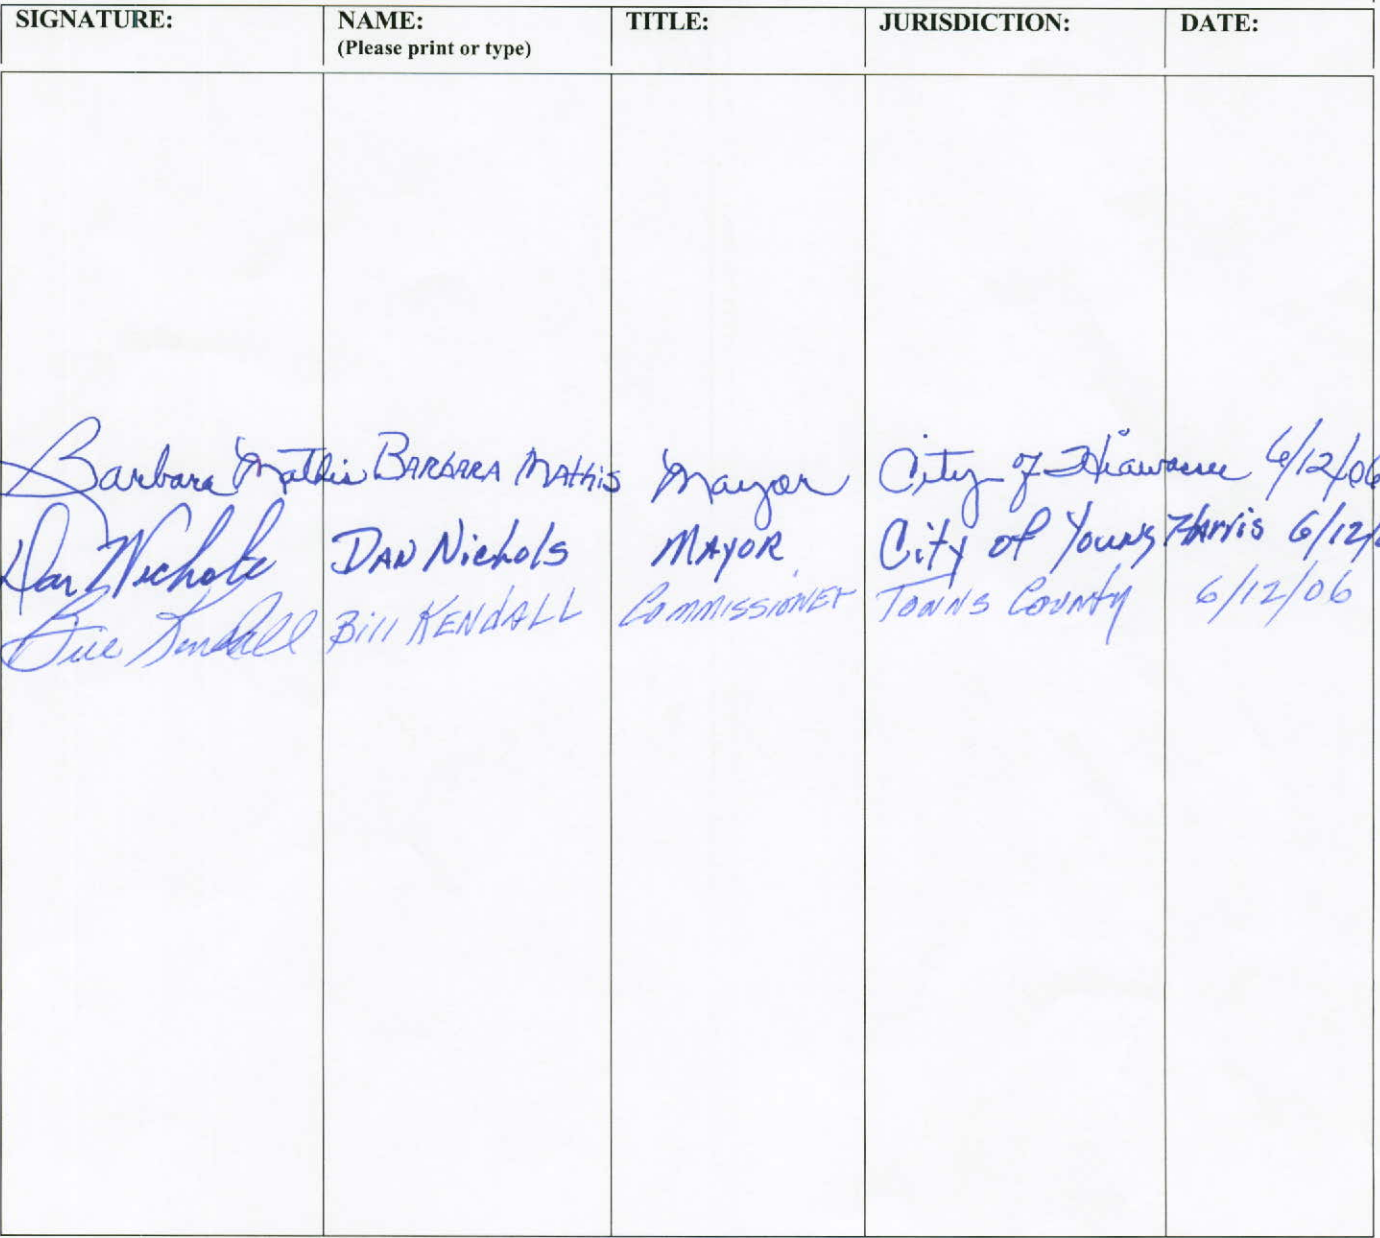 SIGNATURE: NAME: TITLE: JURISDICTION: DATE:
(Please print or type)
Barbara Mathis BARBARA MATHIS Mayor City of Hiawassee 6/12/06
Dan Nichols DAN NichOLS MAYOR City of Young Harris 6/12/
Bill Kendall Bill KENDALL COMMISSIONER TOWNS COUNTY 6/12/06